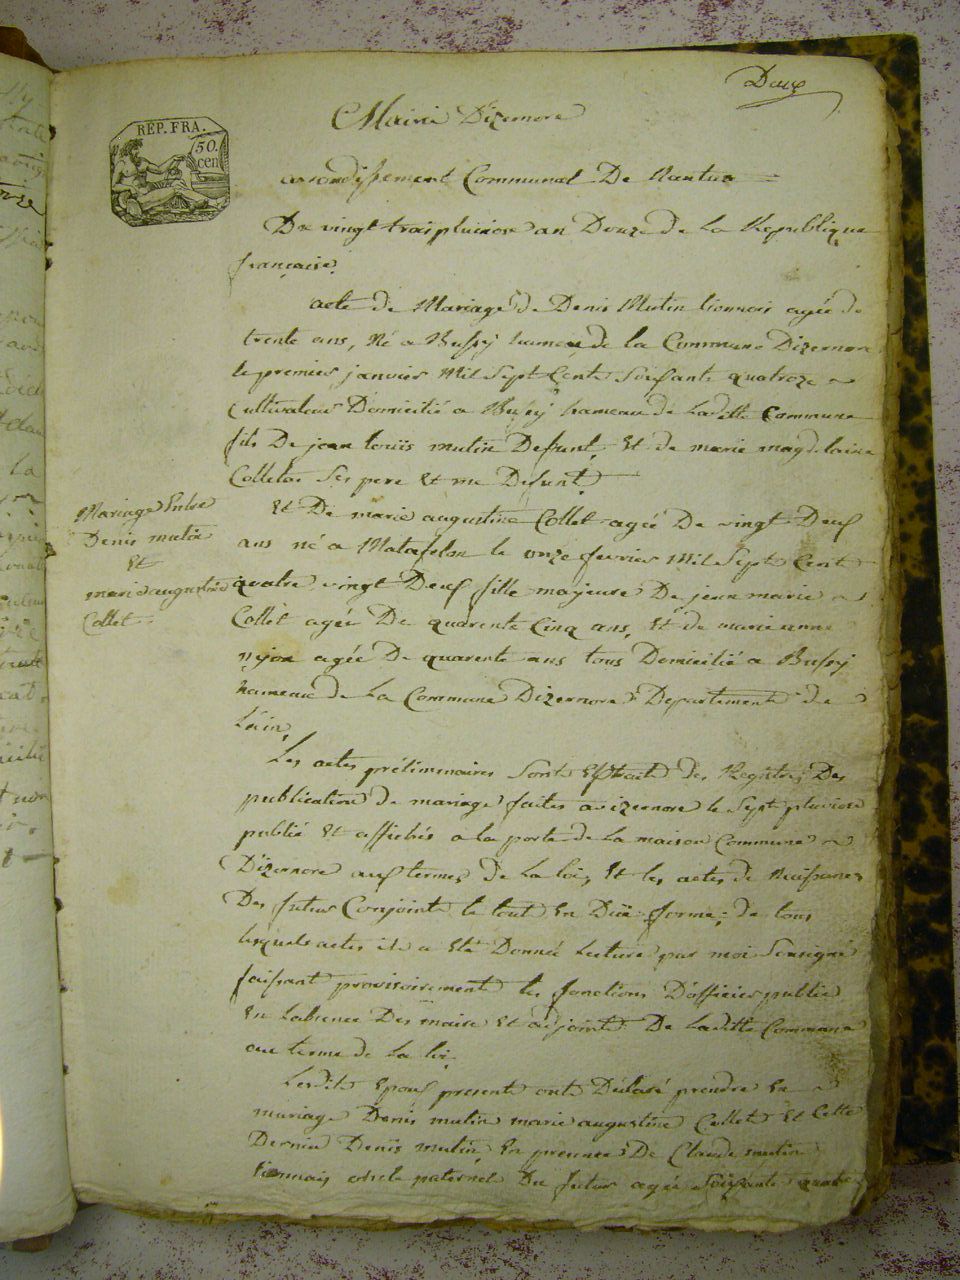 Deux
REP. FRA.
50.
cen
Mairie Dizernore
arrondissement Communal De Nantua
Du vingt trois pluviose an Douze de La Republique
française.
acte de Mariage de Denis Mutin lionnois agée de
trente ans, Né a Bussy hameau de la Commune Dizernore
le premier janvier Mil Sept Cent Soissante quatroze
Cultivateur Domicilié a Bussy hameau de Laditte Commune
fils De jean Louis mutin Defunt, Et de marie magdelaine
Colleton Ses pere Et me Defunt
Mariage Entre
Denis mutin
Et
marie augustine
Collet
Et De marie augustine Collet agée De vingt Deux
ans né a Matafelon le onze fevrier Mil Sept Cent
quatre vingt Deux fille majeure De jean marie
Collet agée De quarente Cinq ans, Et de marie anne
nyon agée De quarente ans tous Domicilié a Bussy
hameau de La Commune Dizernore Departement de
Lain,
Les actes préliminaires Sont Extrait des Registres Des
publication de mariage faites a izernore le Sept pluviose
publié Et affichés a la porte de La maison Commune
Dizernore aux termes de La loi, Et les actes de Naissances
Des futurs Conjoints le tout En Düe forme; de tous
lesquels actes il a Eté Donnée Lecture par moi Sousigné
faissant provisoirement les fonctions D'officier public
En Labsence Des maire Et adjoint De Laditte Commune
au terme de La loi,
Lesdits Epoux present ont Déclaré prendre En
mariage Denis mutin marie augustine Collet Et Cette
Derniere Denis mutin En presence De Claude mutin
lionnais oncle paternel Du futur agée Soissante quatre